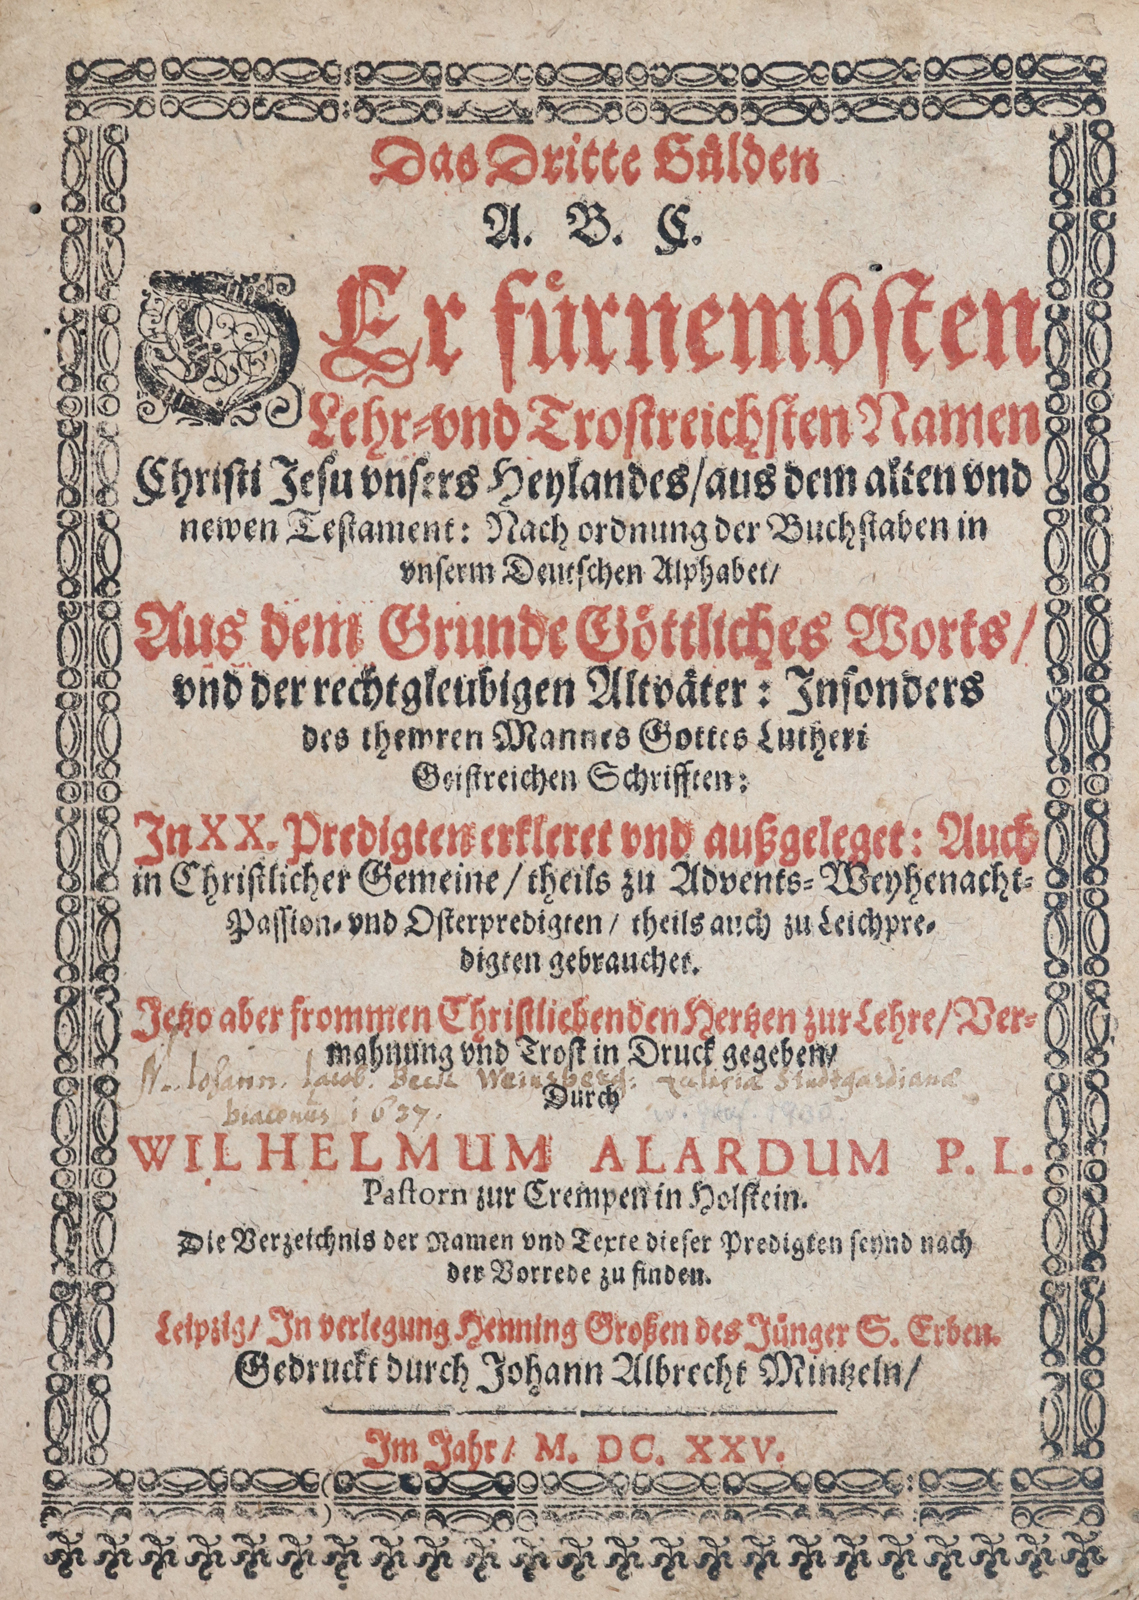 Das Dritte Gülden
A. B. C.
DEr fürnembsten
Lehr-vnd Trostreichsten Namen
Christi Jesu vnsers Heylandes/aus dem alten vnd
newen Testament: Nach ordnung der Buchstaben in
vnserm Deutschen Alphabet/
Aus dem Grunde Göttliches Worts/
vnd der rechtgleubigen Altväter: Insonders
des thewren Mannes Gottes Lutheri
Geistreichen Schrifften:
In XX. Predigten erkleret vnd außgeleget: Auch
in Christlicher Gemeine/ theils zu Advents-Weyhenacht-
Passion-vnd Osterpredigten/ theils auch zu Leichpre-
digten gebrauchet.
Jetzo aber frommen Christliebenden Hertzen zur Lehre/Ver-
mahnung vnd Trost in Druck gegeben/
M. Iohann. Iacob. Beck Weinsberg: Stutgardianæ
Durch
Diaconus 1637.
WILHELMUM ALARDUM P. L.
Pastorn zur Crempen in Holstein.
Die Verzeichnis der Namen vnd Texte dieser Predigten seynd nach
der Vorrede zu finden.
Leipzig/ In verlegung Henning Großen des Jünger S. Erben.
Gedruckt durch Johann Albrecht Mintzeln/
Im Jahr/ M. DC. XXV.